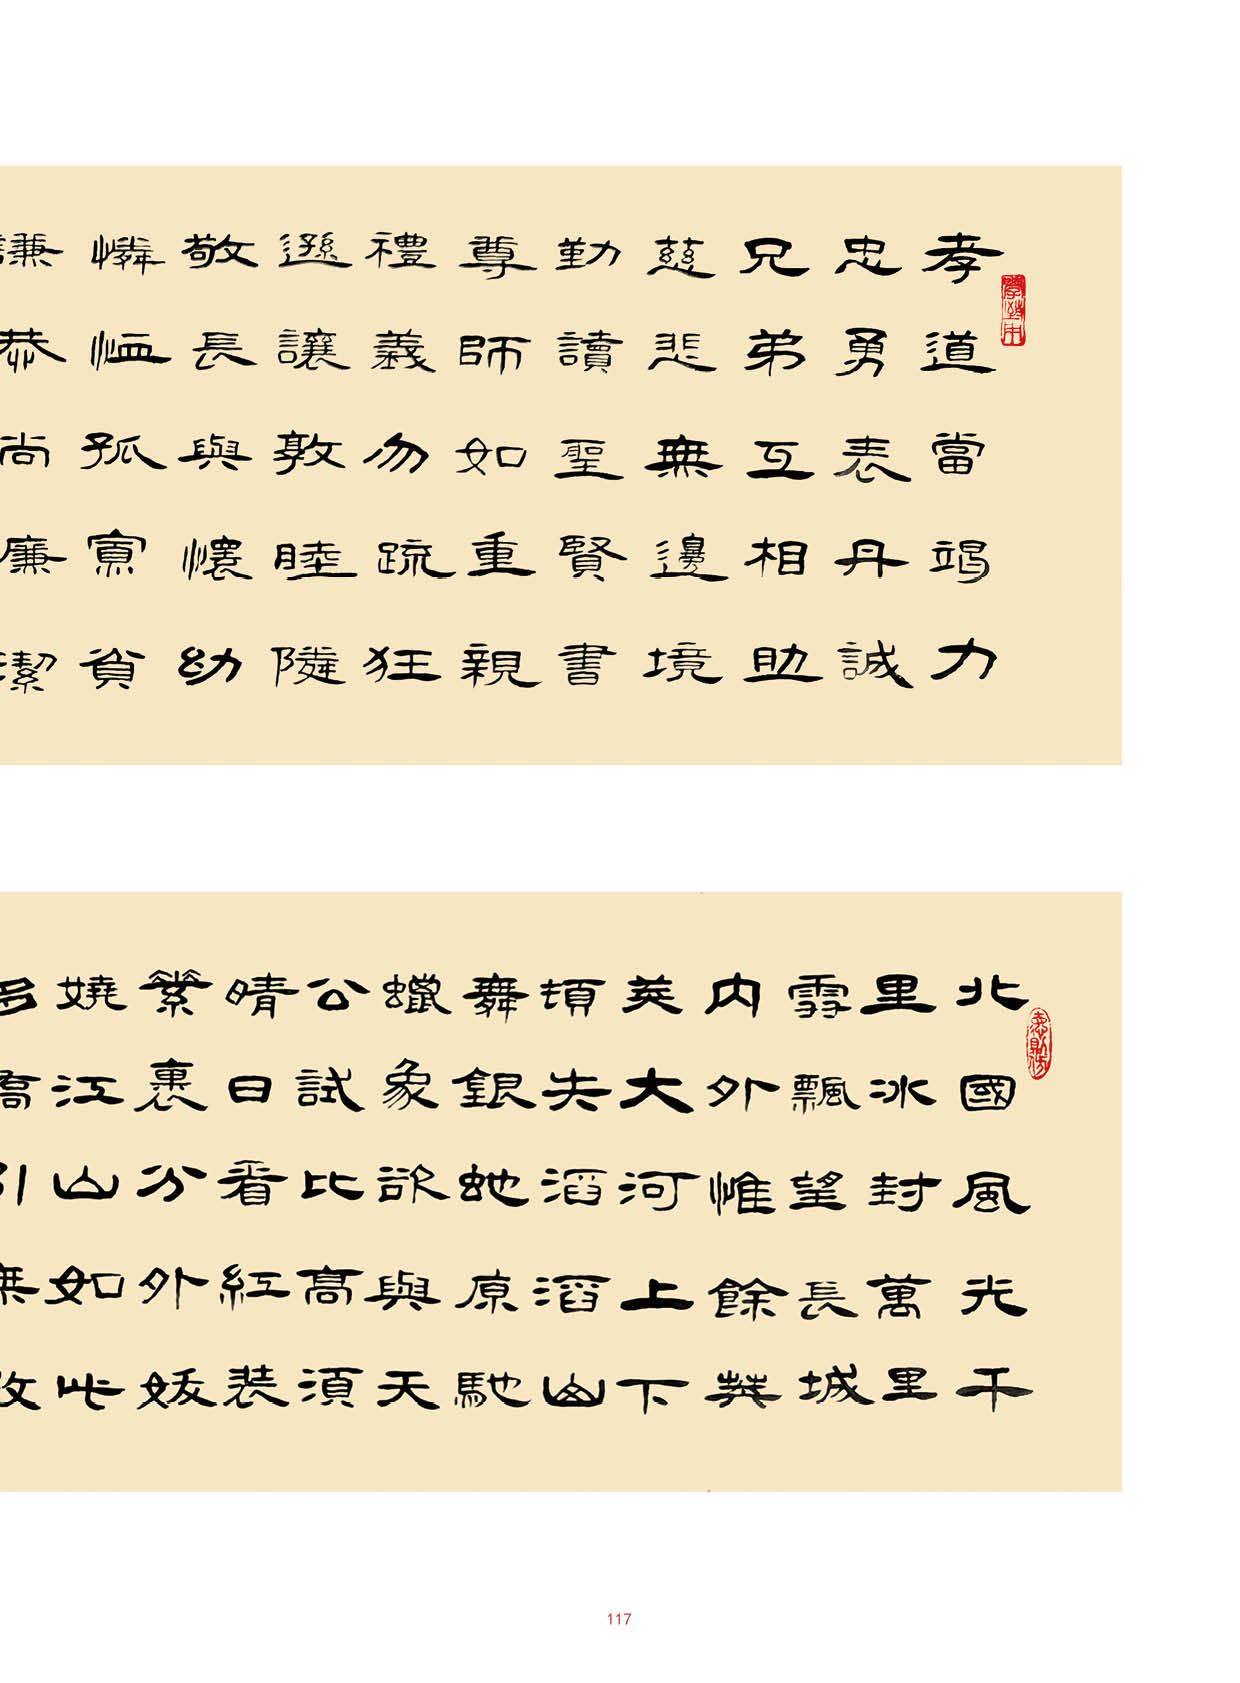 孝道當竭力
忠勇表丹誠
兄弟互相助
慈悲無邊境
勤讀聖賢書
尊師如重親
禮義勿疏狂
遜讓敦睦隣
敬長與懷幼
憐恤孤寡貧
謙恭尚廉潔
北國風光千
里冰封萬里
雪飄望長城
內外惟餘莽
莽大河上下
頓失滔滔山
舞銀蛇原馳
蠟象欲與天
公試比高須
晴日看紅裝
素裹分外妖
嬈江山如此
多嬌引無數
117